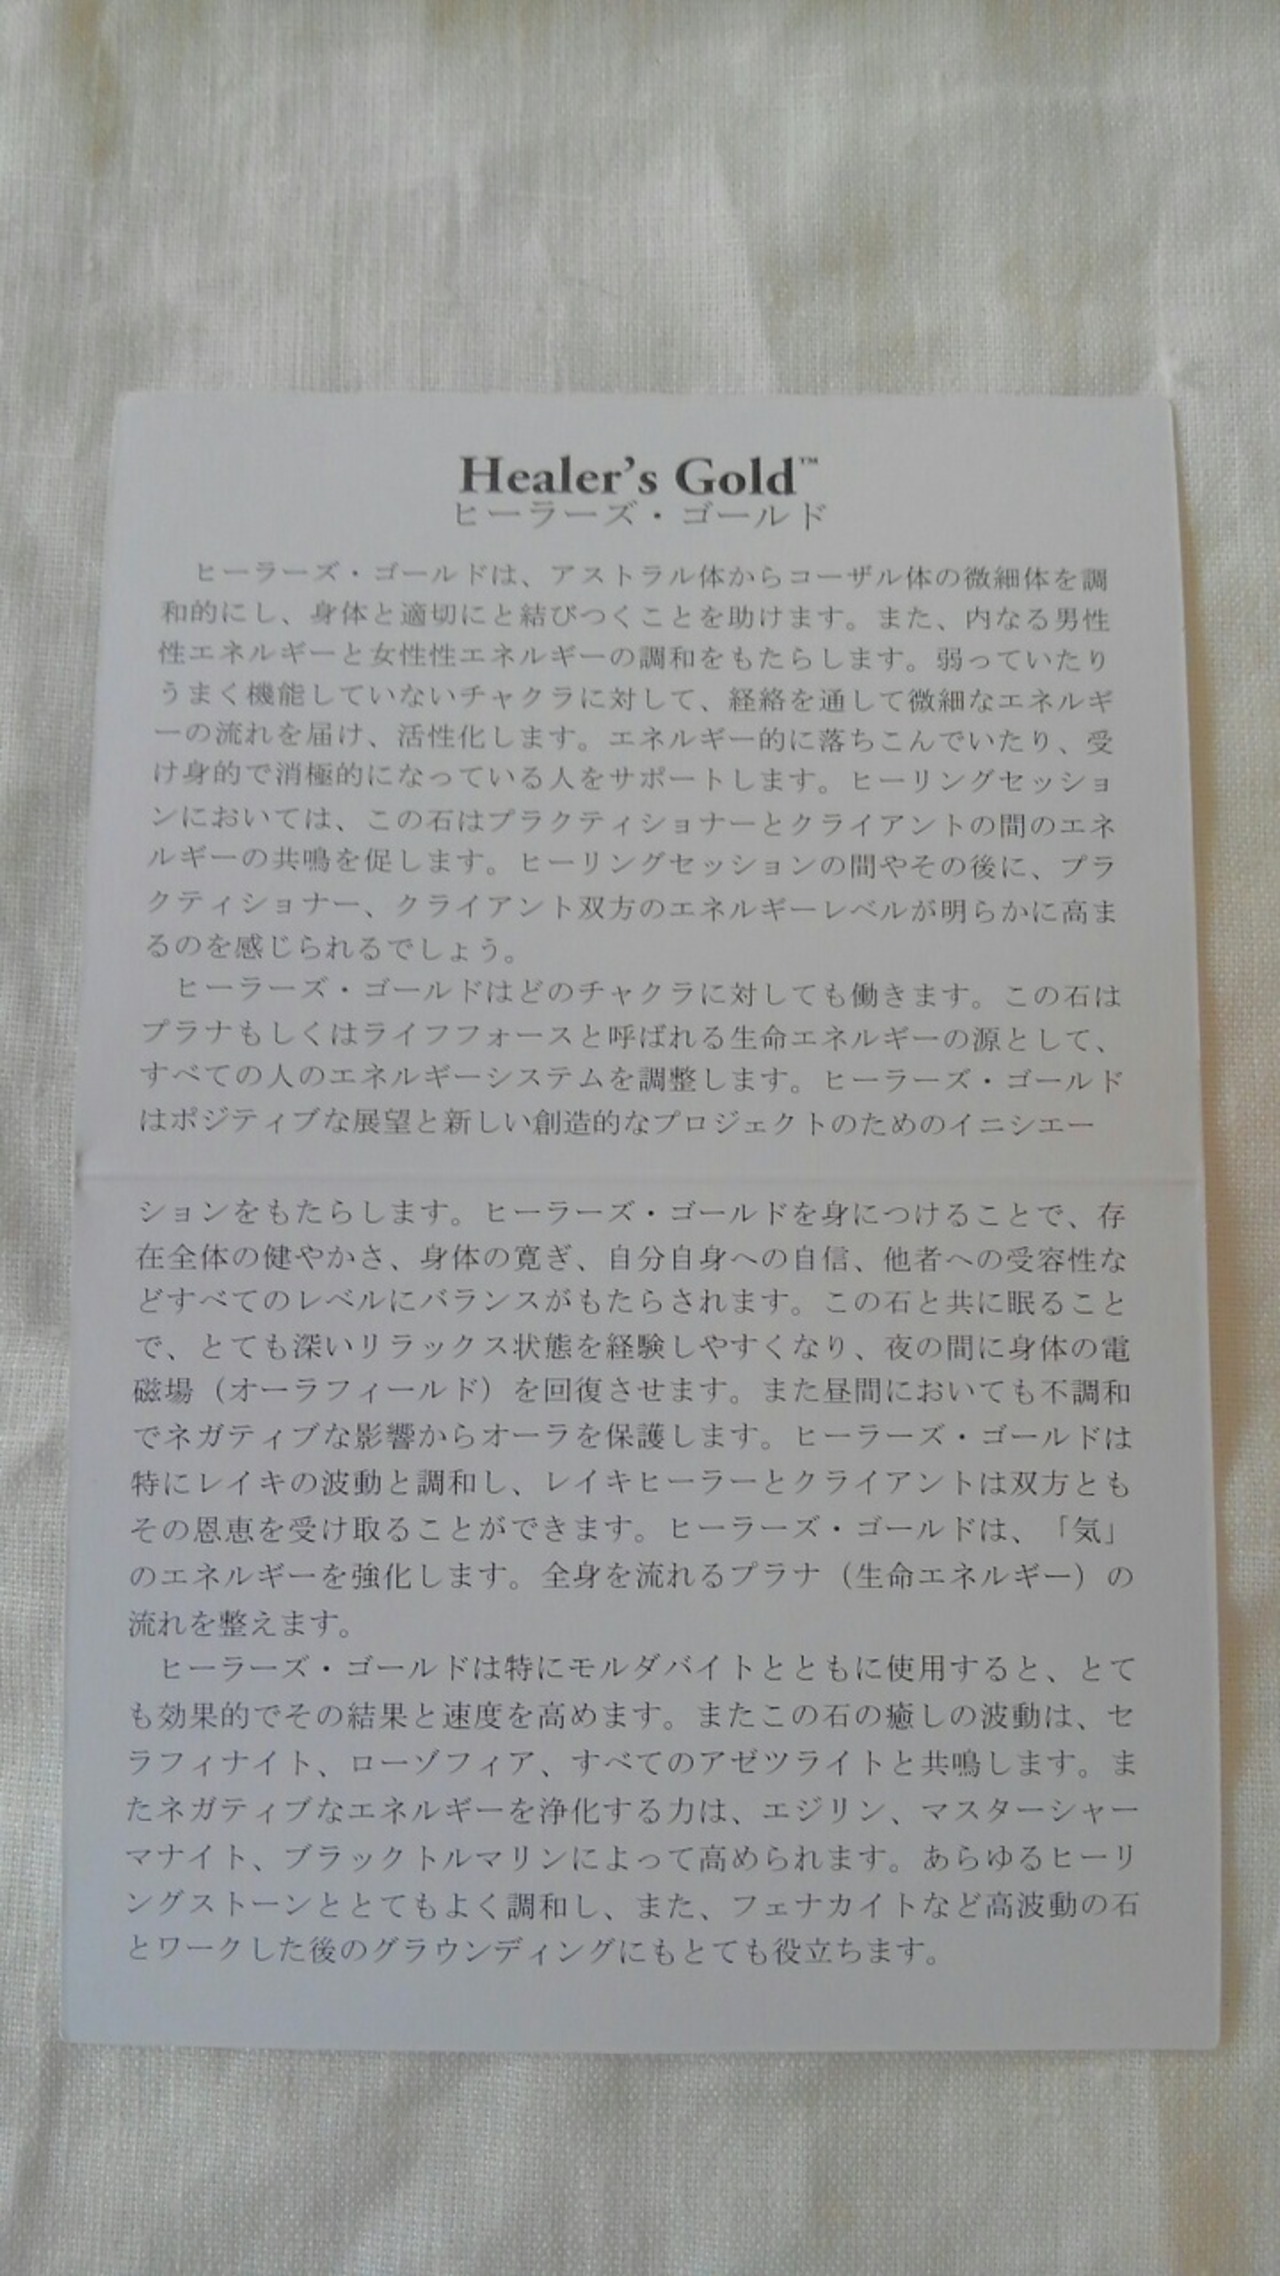 Healer's Gold™
ヒーラーズ・ゴールド
ヒーラーズ・ゴールドは、アストラル体からコーザル体の微細体を調
和的にし、身体と適切にと結びつくことを助けます。また、内なる男性
性エネルギーと女性性エネルギーの調和をもたらします。弱っていたり
うまく機能していないチャクラに対して、経絡を通して微細なエネルギ
ーの流れを届け、活性化します。エネルギー的に落ちこんでいたり、受
け身的で消極的になっている人をサポートします。ヒーリングセッショ
ンにおいては、この石はプラクティショナーとクライアントの間のエネ
ルギーの共鳴を促します。ヒーリングセッションの間やその後に、プラ
クティショナー、クライアント双方のエネルギーレベルが明らかに高ま
るのを感じられるでしょう。
ヒーラーズ・ゴールドはどのチャクラに対しても働きます。この石は
プラナもしくはライフフォースと呼ばれる生命エネルギーの源として、
すべての人のエネルギーシステムを調整します。ヒーラーズ・ゴールド
はポジティブな展望と新しい創造的なプロジェクトのためのイニシエー
ションをもたらします。ヒーラーズ・ゴールドを身につけることで、存
在全体の健やかさ、身体の寛ぎ、自分自身への自信、他者への受容性な
どすべてのレベルにバランスがもたらされます。この石と共に眠ること
で、とても深いリラックス状態を経験しやすくなり、夜の間に身体の電
磁場（オーラフィールド）を回復させます。また昼間においても不調和
でネガティブな影響からオーラを保護します。ヒーラーズ・ゴールドは
特にレイキの波動と調和し、レイキヒーラーとクライアントは双方とも
その恩恵を受け取ることができます。ヒーラーズ・ゴールドは、「気」
のエネルギーを強化します。全身を流れるプラナ（生命エネルギー）の
流れを整えます。
ヒーラーズ・ゴールドは特にモルダバイトとともに使用すると、とて
も効果的でその結果と速度を高めます。またこの石の癒しの波動は、セ
ラフィナイト、ローゾフィア、すべてのアゼツライトと共鳴します。ま
たネガティブなエネルギーを浄化する力は、エジリン、マスターシャー
マナイト、ブラックトルマリンによって高められます。あらゆるヒーリ
ングストーンととてもよく調和し、また、フェナカイトなど高波動の石
とワークした後のグラウンディングにもとても役立ちます。